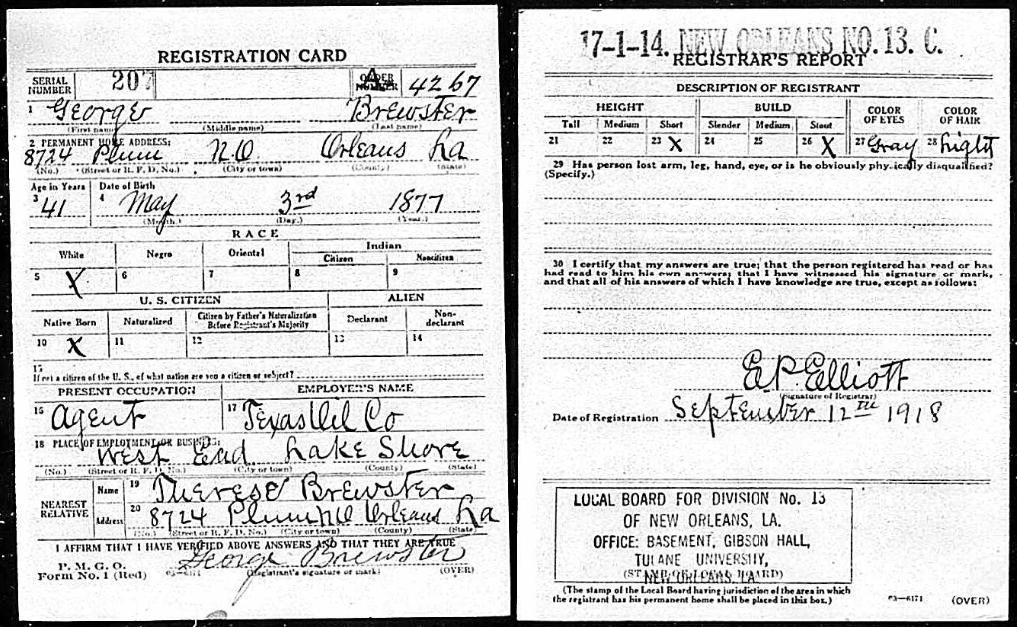 REGISTRATION CARD
SERIAL NUMBER 207 ORDER NUMBER A 4267
1 George Brewster
(First name) (Middle name) (Last name)
2 PERMANENT HOME ADDRESS:
8724 Plum N.O Orleans La
(No.) (Street or R. F. D. No.) (City or town) (County) (State)
Age in Years Date of Birth
3 41 4 May 3rd 1877
(Month.) (Day.) (Year.)
RACE
White Negro Oriental Indian
Citizen Noncitizen
5 X 6 7 8 9
U. S. CITIZEN ALIEN
Native Born Naturalized Citizen by Father's Naturalization Before Registrant's Majority Declarant Non-declarant
10 X 11 12 13 14
15
If not a citizen of the U. S., of what nation are you a citizen or subject?
PRESENT OCCUPATION EMPLOYER'S NAME
16 Agent 17 Texas Oil Co
18 PLACE OF EMPLOYMENT OR BUSINESS:
West End Lake Shore
(No.) (Street or R. F. D. No.) (City or town) (County) (State)
NEAREST RELATIVE Name 19 Therese Brewster
Address 20 8724 Plum NO Orleans La
(No.) (Street or R. F. D. No.) (City or town) (County) (State)
I AFFIRM THAT I HAVE VERIFIED ABOVE ANSWERS AND THAT THEY ARE TRUE
P. M. G. O.
Form No. 1 (Red) 03—6171 George Brewster
(Registrant's signature or mark) (OVER)
17-1-14. NEW ORLEANS NO. 13. C.
REGISTRAR'S REPORT
DESCRIPTION OF REGISTRANT
HEIGHT BUILD COLOR OF EYES COLOR OF HAIR
Tall Medium Short Slender Medium Stout
21 22 23 X 24 25 26 X 27 Gray 28 Light
29 Has person lost arm, leg, hand, eye, or is he obviously physically disqualified?
(Specify.)
30 I certify that my answers are true; that the person registered has read or has
had read to him his own answers; that I have witnessed his signature or mark,
and that all of his answers of which I have knowledge are true, except as follows:
E.P. Elliott
(Signature of Registrar)
Date of Registration September 12th 1918
LOCAL BOARD FOR DIVISION No. 13
OF NEW ORLEANS, LA.
OFFICE: BASEMENT, GIBSON HALL,
TULANE UNIVERSITY,
(STAMP OF LOCAL BOARD)
NEW ORLEANS, LA.
(The stamp of the Local Board having jurisdiction of the area in which
the registrant has his permanent home shall be placed in this box.)
03—6171 (OVER)